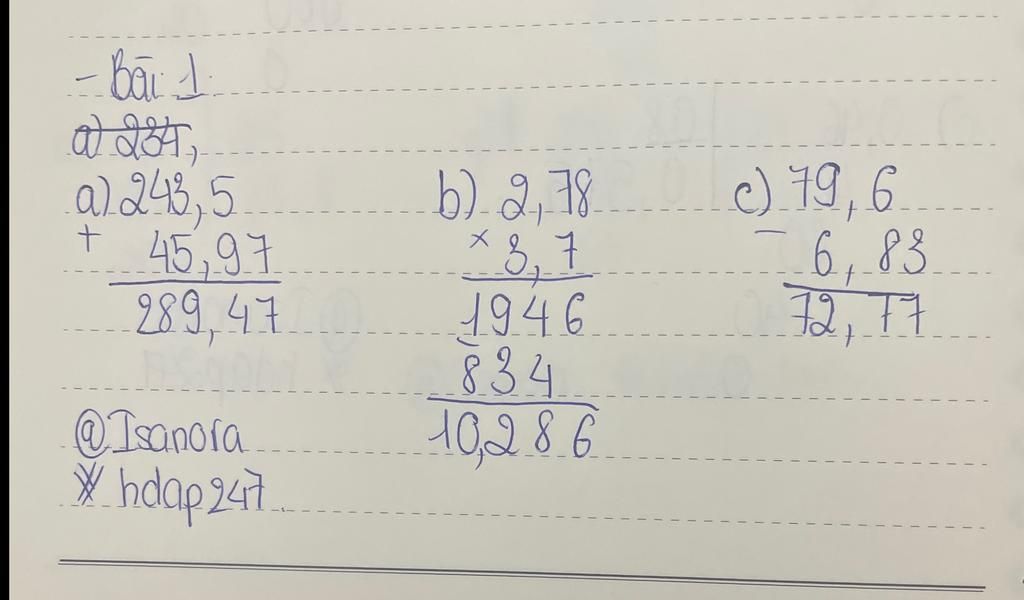 - Bài 1
a) 234,
a) 243,5 b) 2,78 c) 79,6
+ 45,97 × 3,7 - 6,83
289,47 1946 72,77
834
10,286
@Isanora
hdap247